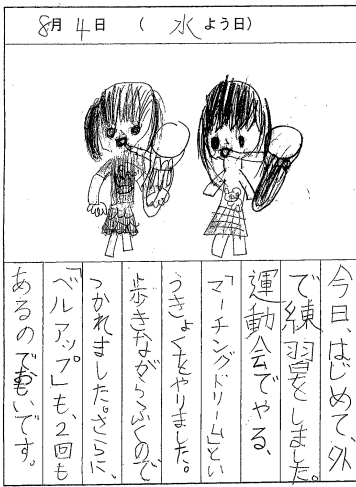 8月 4日 (水よう日)
今日、はじめて、外
で練習をしました。
運動会でやる、
「マーチングドリーム」とい
うきょくをやりました。
歩きながらふくので
つかれました。さらに、
「ベルアップ」も、2回も
あるのでおもいです。